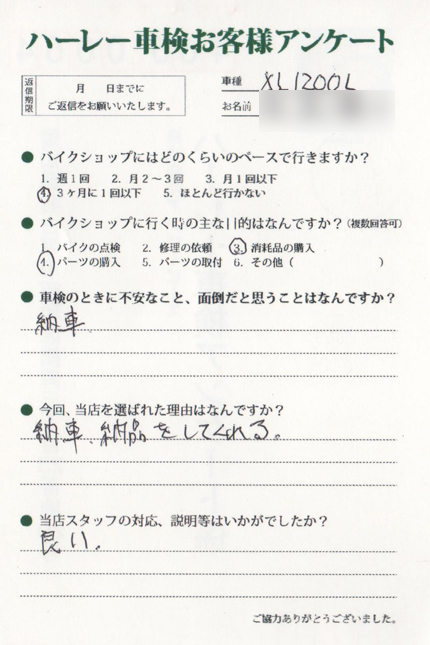 ハーレー車検お客様アンケート
返信期限
月 日までに
ご返信をお願いいたします。
車種 XL1200L
お名前
● バイクショップにはどのくらいのペースで行きますか？
1. 週1回 2. 月2〜3回 3. 月1回以下
4. 3ヶ月に1回以下 5. ほとんど行かない
● バイクショップに行く時の主な目的はなんですか？(複数回答可)
1. バイクの点検 2. 修理の依頼 3. 消耗品の購入
4. パーツの購入 5. パーツの取付 6. その他 ( )
● 車検のときに不安なこと、面倒だと思うことはなんですか？
納車
● 今回、当店を選ばれた理由はなんですか？
納車、納品をしてくれる。
● 当店スタッフの対応、説明等はいかがでしたか？
良い。
ご協力ありがとうございました。